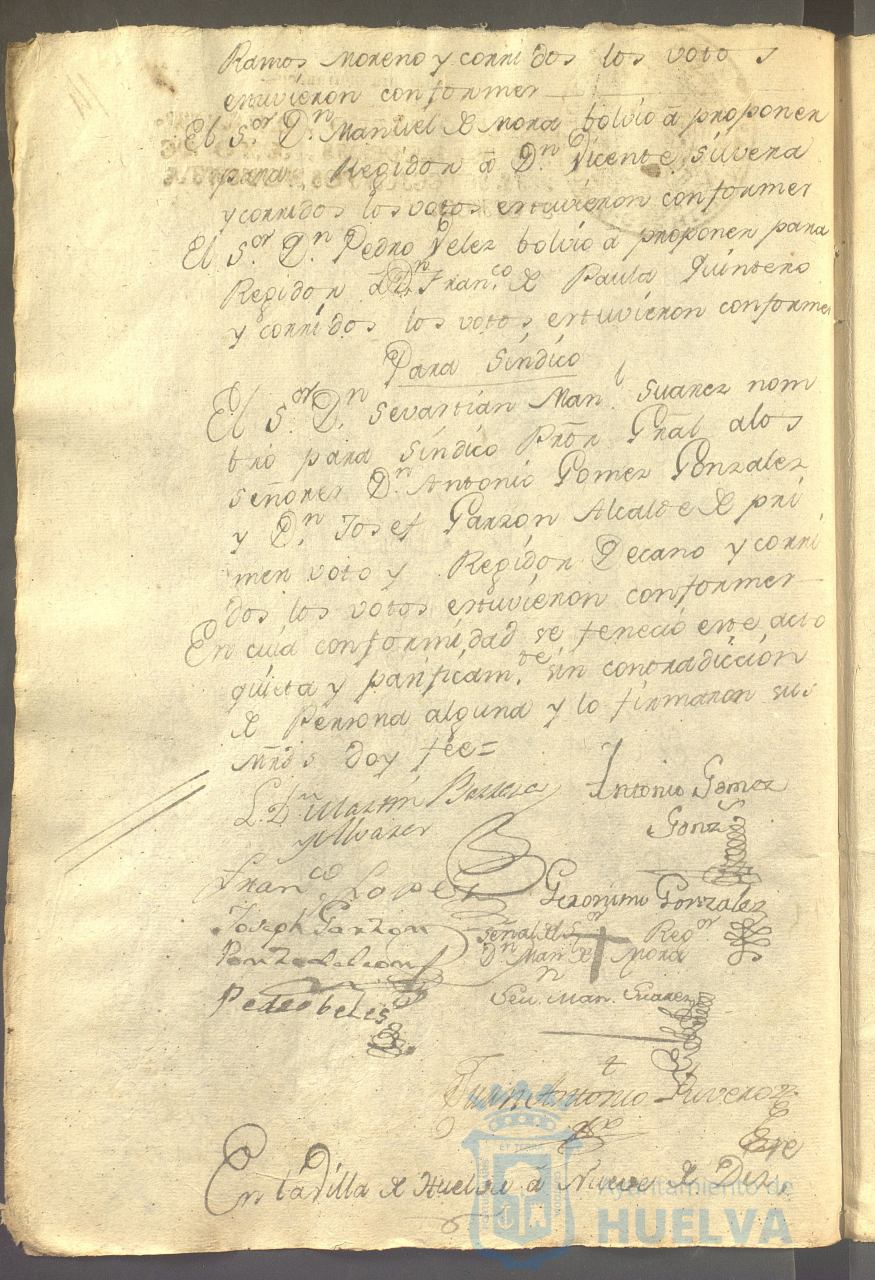 Ramos Moreno y corridos los votos
estuvieron conformes
El S.or D.n Manuel de Mora bolvio â proponer
para Regidor â D.n Vicente Silvera
y corridos los votos estuvieron conformes
El S.or D.n Pedro Velez bolvio â proponer para
Regidor â D.n Fran.co de Paula Quintero
y corridos los votos estuvieron conformes
Para Sindico
El S.or D.n Sevastian Man.l Suarez nom
bró para Sindico Pror Gral alos
señores D.n Antonio Gomez Gonzalez
y D.n Josef Garzon Alcalde de pri
mer voto y Regidor Decano y corri
dos los votos estuvieron conformes
En cuia conformidad se feneció este acto
quieta y pacificam.te sin contradicción
de Persona alguna y lo firmaron sus
Mrds doy fee=
L. D.n Martin Barrera
y Alvarez
Antonio Gomez
Gonz
Fran.co Lopez
Geronimo Gonzalez
Joseph Garzon
Ponze de Leon
Señal del S.or Reg.or
D.n Man.l de Mora
Pedro belis
Sev.n Man. Suarez
Juan Antonio Rivero
En la Villa de Huelva â Nueve de Diz.
Ayuntamiento de
HUELVA